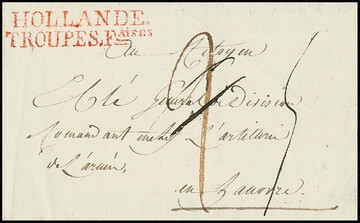 HOLLANDE.
TROUPES.Fçaises
Au Citoyen
Eblé Général de Division
Comandant en chef L'artillerie
de L'armée,
en hanovre.